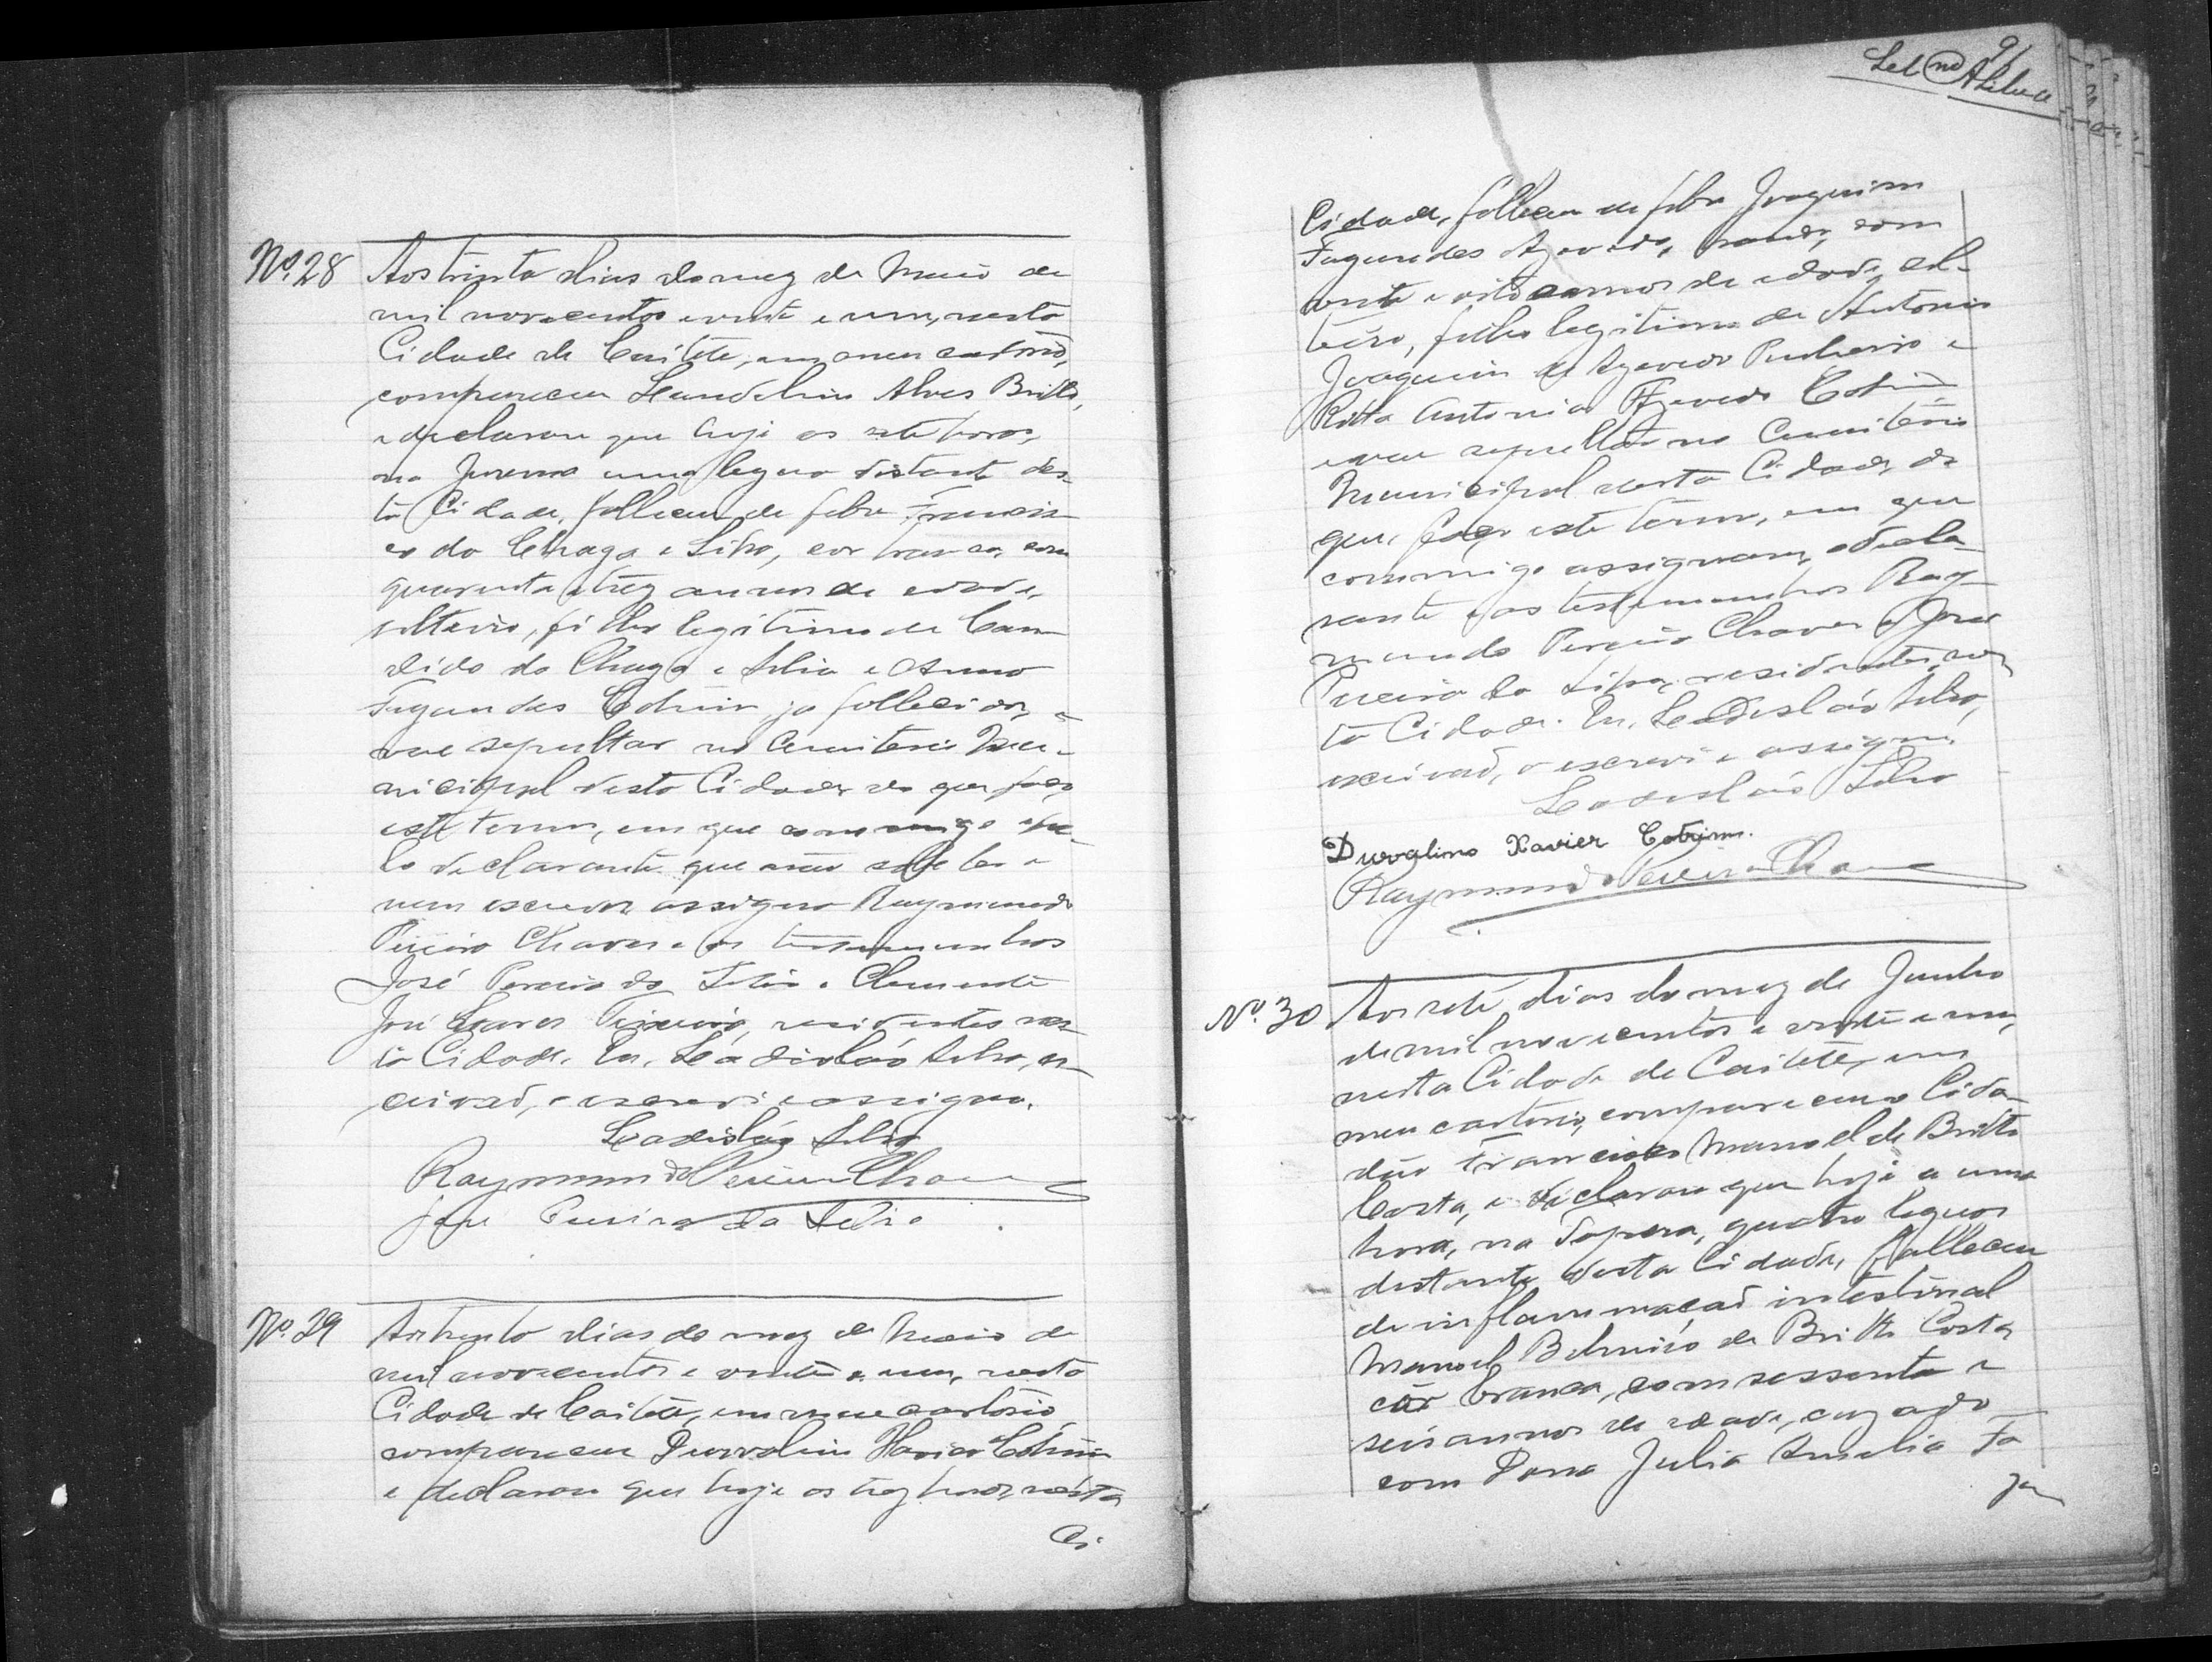 Nº 28 Aos trinta dias do mez de Maio de
mil novecentos e vinte e um, nesta
Cidade de Caiteté, em meu cartorio,
compareceu Alves Britto,
e declarou que hoje as sete horas,
na Jurema uma legua distante des-
ta Cidade, falleceu de febre Francis-
co da Chaga e Silva, cor branca, com
quarenta e trez annos de edade,
solteiro, filho legitimo de Can-
dido da Chaga e Silva e Anna
Fagundes Cotrim, ja fallecidos, e
vae sepultar no Cemiterio Mu-
nicipal desta Cidade, do que faço
este termo, em que commigo pe-
lo declarante que não sabe ler e
nem escrever assigna Raymundo
Pereira Chaves e as testemunhas
José Pereira da Silva e Clemente
José Teixeira, residentes nes-
ta Cidade. Eu, Ladisláo Silva, es-
crivão, o escrevi e assigno.
Ladisláo Silva
Raymundo Pereira Chaves
José Pereira da Silva
Nº 29 Aos trinta dias do mez de Maio de
mil novecentos e vinte e um, nesta
Cidade de Caiteté, em meu cartorio
compareceu Durvalino Xavier Cotrim
e declarou que hoje as trez horas, nesta
Ci-
91
Cidade, falleceu de febre Joaquim
Fagundes Azevedo, com
vinte e oito annos de edade, sol-
teiro, filho legitimo de Antonio
Joaquim de Azevedo Pinheiro e
Ritta Antonia Azevedo Cotrim
e vae sepultar no Cemiterio
Municipal desta Cidade, do
que faço este termo, em que
commigo assignam, o decla-
rante e as testemunhas Ray-
mundo Pereira Chaves e José
Pereira da Silva, residentes nes-
ta Cidade. Eu, Ladisláo Silva,
escrivão, o escrevi e assigno,
Ladisláo Silva
Durvalino Xavier Cotrim.
Raymundo Pereira Chaves
Nº 30 Aos sete dias do mez de Junho
de mil novecentos e vinte e um,
nesta Cidade de Caiteté, em
meu cartorio, compareceu o Cida-
dão Francisco Manoel de Britto
Costa, e declarou que hoje a uma
hora, na Sapera, quatro leguas
distante desta Cidade, falleceu
de inflammação intestinal
Manoel Belmiro de Britto Costa,
côr branca, com sessenta e
seis annos de edade, cazado
com Dona Julia Amelia Fa